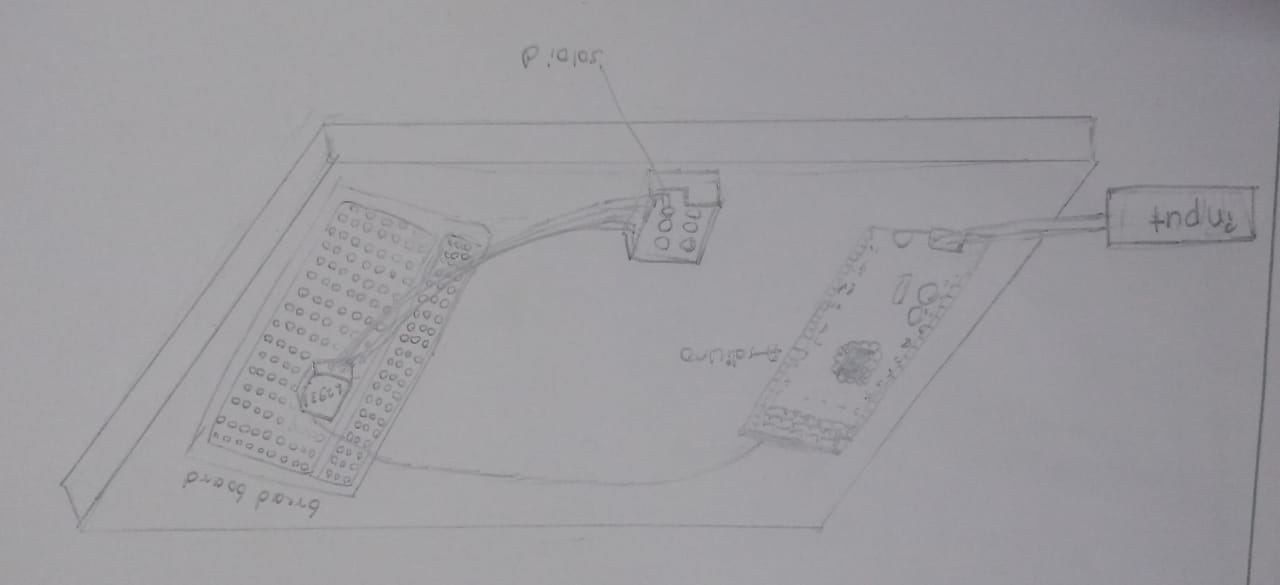 bread board
L293
Ardiuno
input
soloid